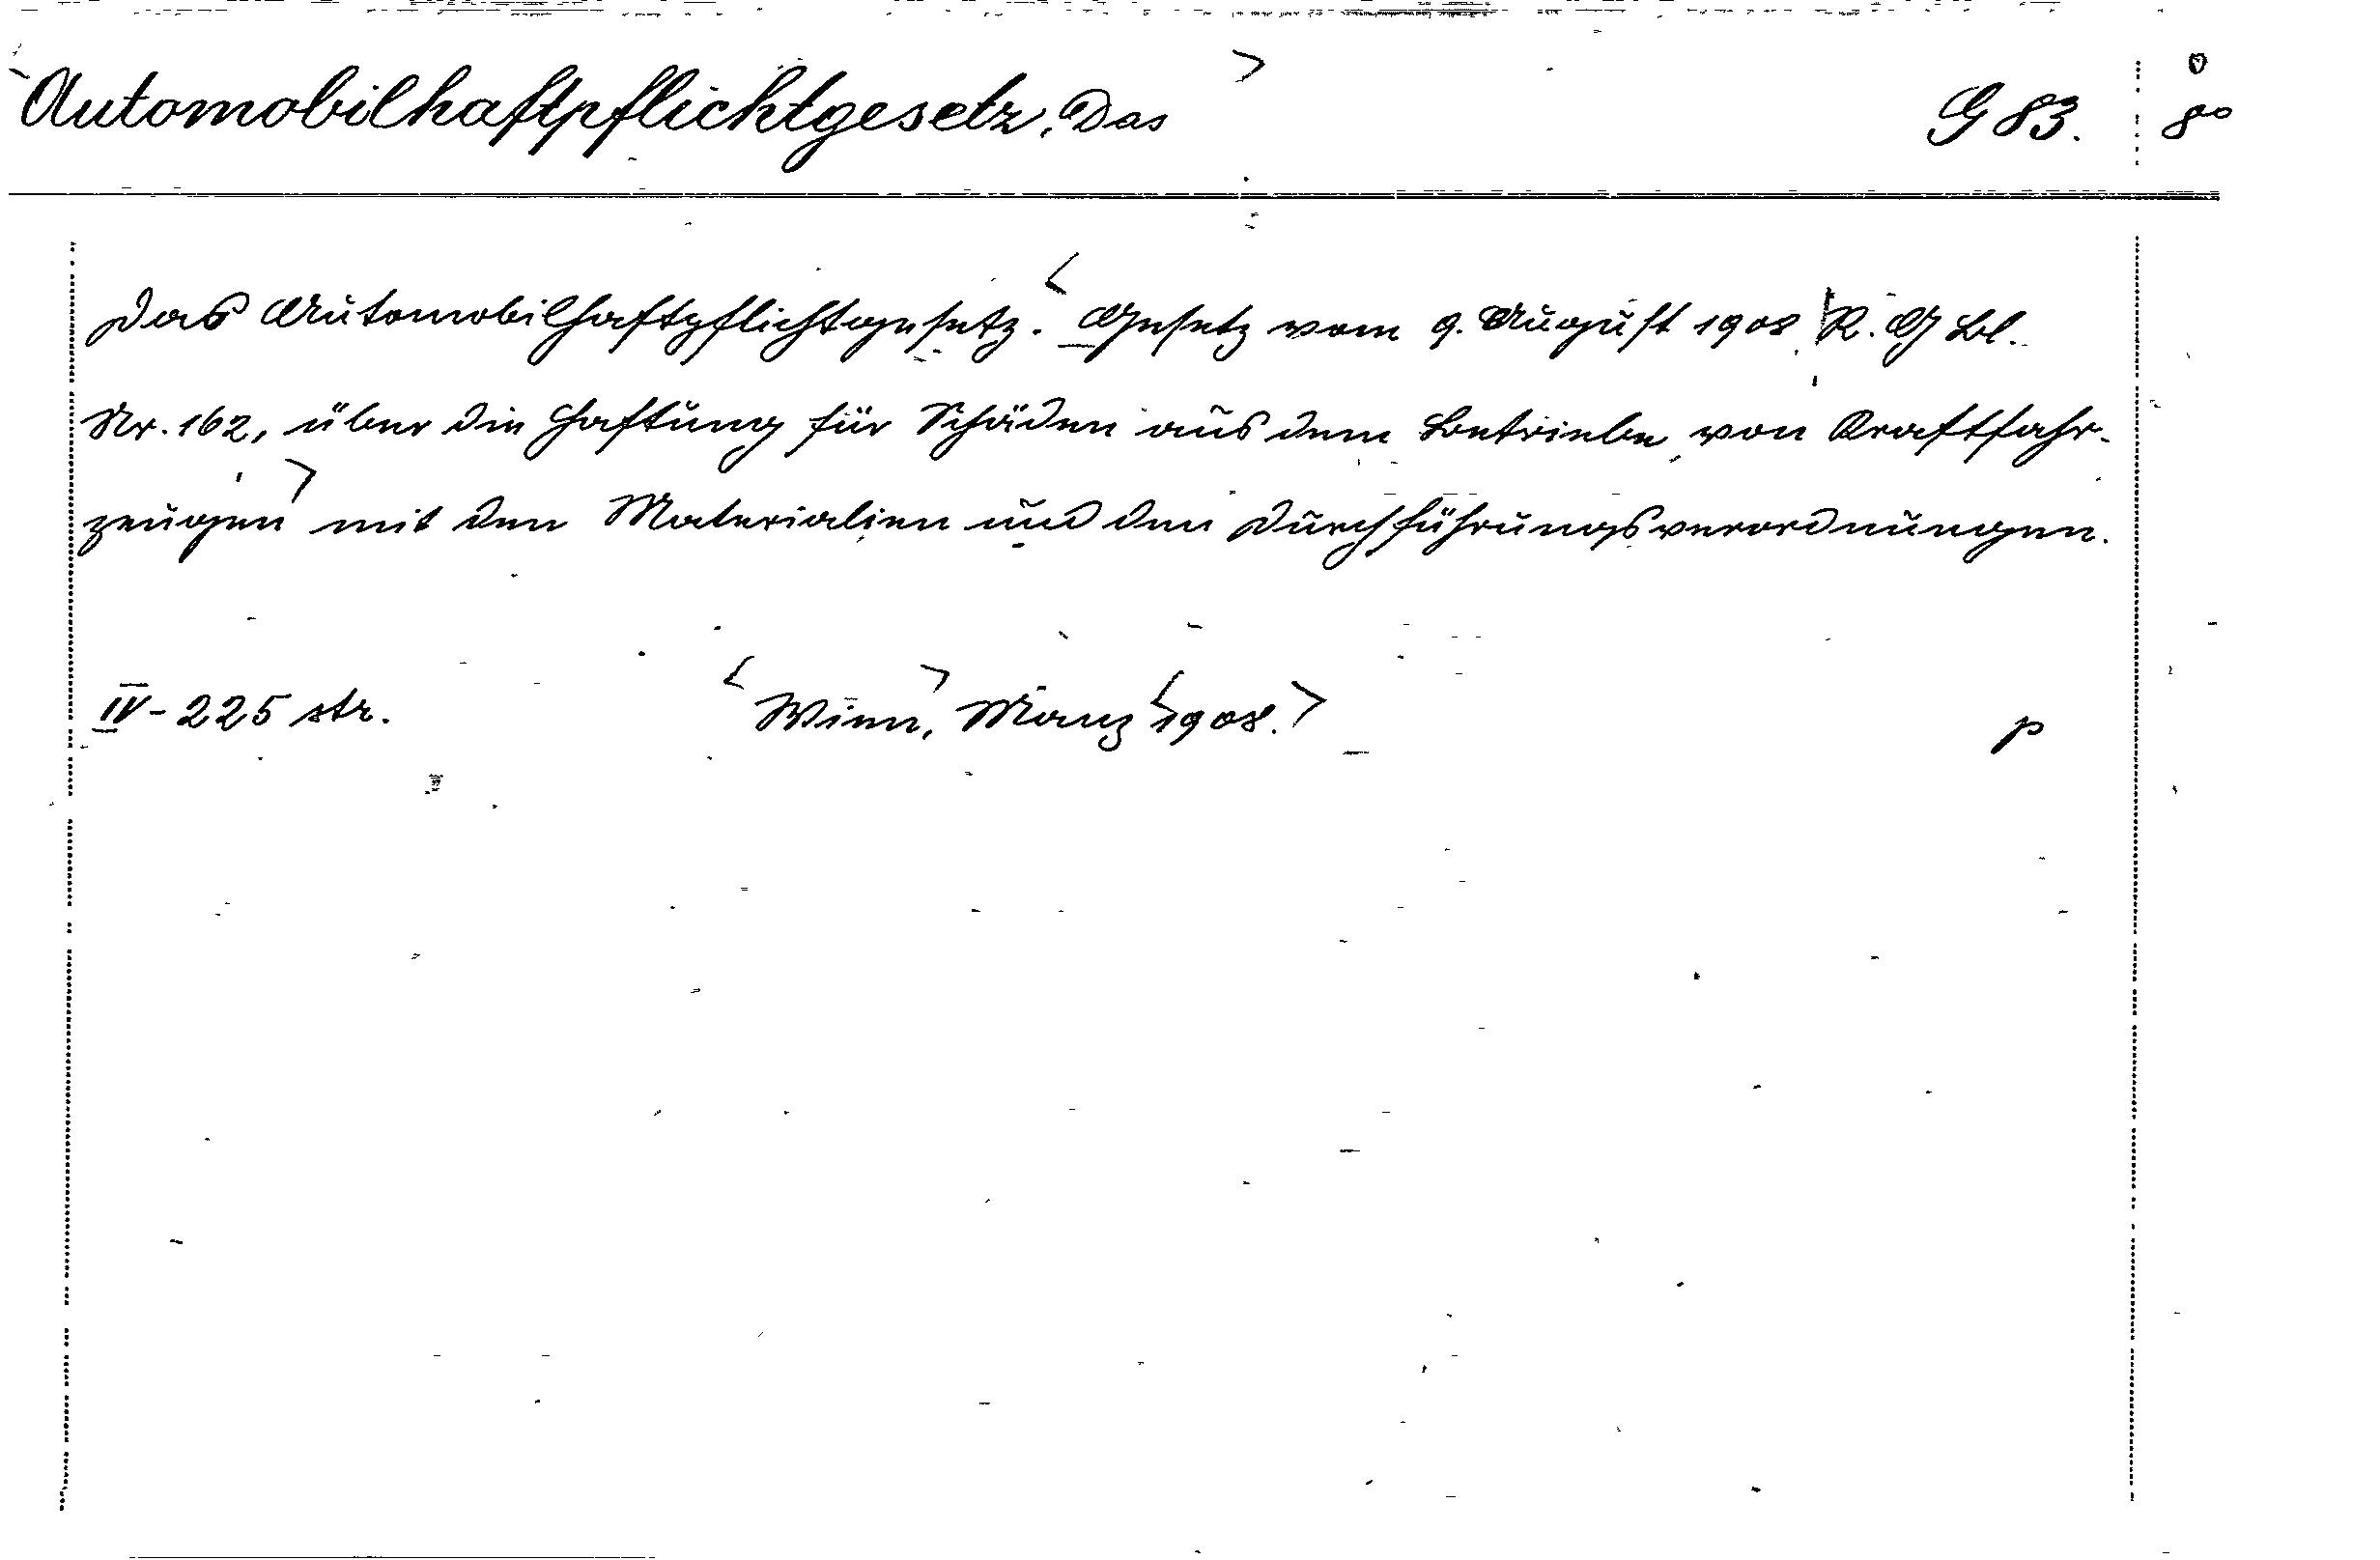 Automobilhaftpflichtgesetz, Das G 83. 8°
Das Automobilhaftpflichtgesetz. Gesetz vom 9. August 1908, R. G Bl.
Nr. 162, über die Haftung für Schäden aus dem Betriebe von Kraftfahr-
zeugen mit den Materialien und den Durchführungsverordnungen.
IV - 225 str. Wien, Manz 1908. p